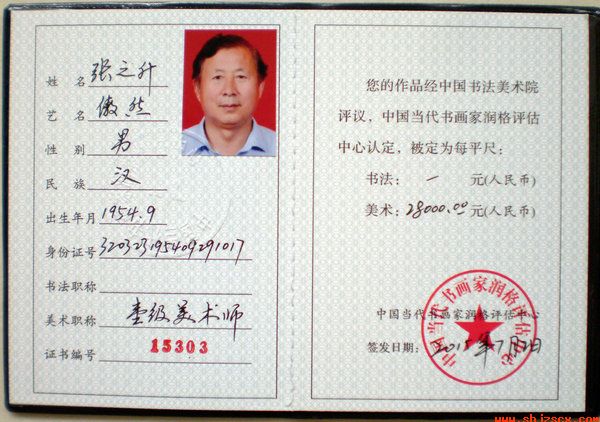 姓 名 张之升
艺 名 傲然
性 别 男
民 族 汉
出生年月 1954.9
身份证号 320323195409291017
书法职称
美术职称 壹级美术师
证书编号 15303
您的作品经中国书法美术院
评议，中国当代书画家润格评估
中心认定，被定为每平尺：
书法： — 元(人民币)
美术：28000.00 元(人民币)
中国当代书画家润格评估中心
签发日期： 2015年7月
中国当代书画家润格评估中心
www.shjzscx.com